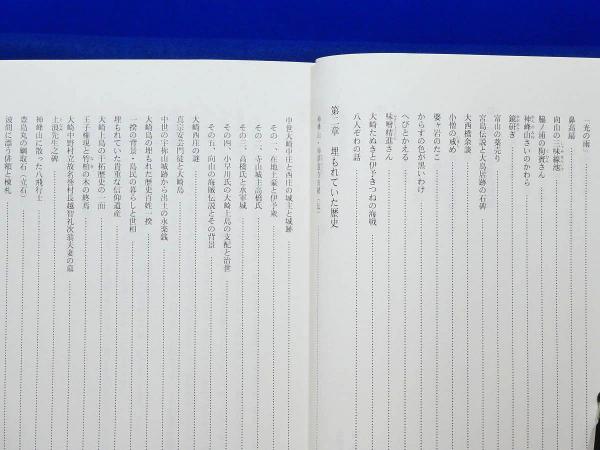 一光の雨
鼻高扇
向山の一味線池
脇ノ浦の狗賓さん
神峰山さいのかわら
鏡研ぎ
富山の薬売り
宮島伝説と大島居跡の石碑
大西橋余談
小僧の戒め
婆ヶ岩のたこ
からすの色が黒いわけ
へびとかえる
味噌精進さん
大崎たぬきと伊予きつねの海戦
八人ぞわの話
第二章 埋もれていた歴史
中世大崎中庄と西庄の城主と城跡
その一、在地土豪と伊予衆
その二、寺山城主高橋氏
その三、高橋氏と水軍城
その四、小早川氏の大崎上島の支配と治世
その五、向山の海賊伝説とその背景
大崎西庄の謎
真宗安芸門徒と大崎島
中世の宇祢山城跡から出土の永楽銭
大崎島の埋もれた歴史百姓一揆
一揆の背景・島民の暮らしと世相
埋もれていた貴重な信仰遺産
大崎上島の干拓歴史の一面
王子権現と竹柏の木の終焉
大崎中野村立故名誉村長越智礼次翁夫妻の墓
土浪先生之碑
神峰山に散った八飛行士
豊島丸の綱取石（立石）
波間に漂う俳額と棟札